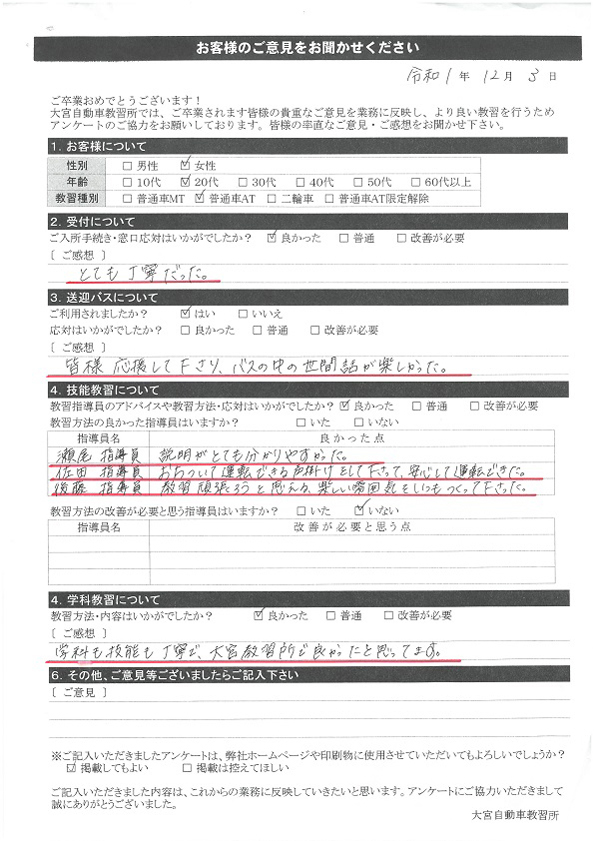 お客様のご意見をお聞かせください
令和1年12月3日
ご卒業おめでとうございます！
大宮自動車教習所では、ご卒業されます皆様の貴重なご意見を業務に反映し、より良い教習を行うため
アンケートのご協力をお願いしております。皆様の率直なご意見・ご感想をお聞かせ下さい。
1. お客様について
性別 □ 男性 ☑ 女性
年齢 □ 10代 ☑ 20代 □ 30代 □ 40代 □ 50代 □ 60代以上
教習種別 □ 普通車MT ☑ 普通車AT □ 二輪車 □ 普通車AT限定解除
2. 受付について
ご入所手続き・窓口応対はいかがでしたか？ ☑ 良かった □ 普通 □ 改善が必要
［ ご感想 ］
とても丁寧だった。
3. 送迎バスについて
ご利用されましたか？ ☑ はい □ いいえ
応対はいかがでしたか？ □ 良かった □ 普通 □ 改善が必要
［ ご感想 ］
皆様 応援して下さり、バスの中の世間話が楽しかった。
4. 技能教習について
教習指導員のアドバイスや教習方法・応対はいかがでしたか？ ☑ 良かった □ 普通 □ 改善が必要
教習方法の良かった指導員はいますか？ □ いた □ いない
指導員名 良かった点
瀬尾 指導員 説明がとても分かりやすかった。
佐田 指導員 おちついて運転できる声掛けをして下さって、安心して運転できた。
後藤 指導員 教習頑張ろうと思える、楽しい雰囲気をいつもつくって下さった。
教習方法の改善が必要と思う指導員はいますか？ □ いた ☑ いない
指導員名 改善が必要と思う点
4. 学科教習について
教習方法・内容はいかがでしたか？ ☑ 良かった □ 普通 □ 改善が必要
［ ご感想 ］
学科も技能も丁寧で、大宮教習所で良かったと思ってます。
6. その他、ご意見等ございましたらご記入下さい
［ ご意見 ］
※ご記入いただきましたアンケートは、弊社ホームページや印刷物に使用させていただいてもよろしいでしょうか？
☑ 掲載してもよい □ 掲載は控えてほしい
ご記入いただきました内容は、これからの業務に反映していきたいと思います。アンケートにご協力いただきまして
誠にありがとうございました。
大宮自動車教習所